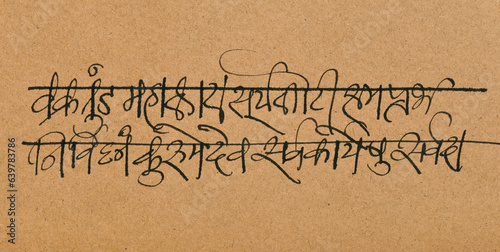 वक्रतुंड महाकाय सूर्यकोटी समप्रभ
निर्विघ्नं कुरुमेदेव सर्वकार्येषु सर्वदा
Adobe Stock | #639783786